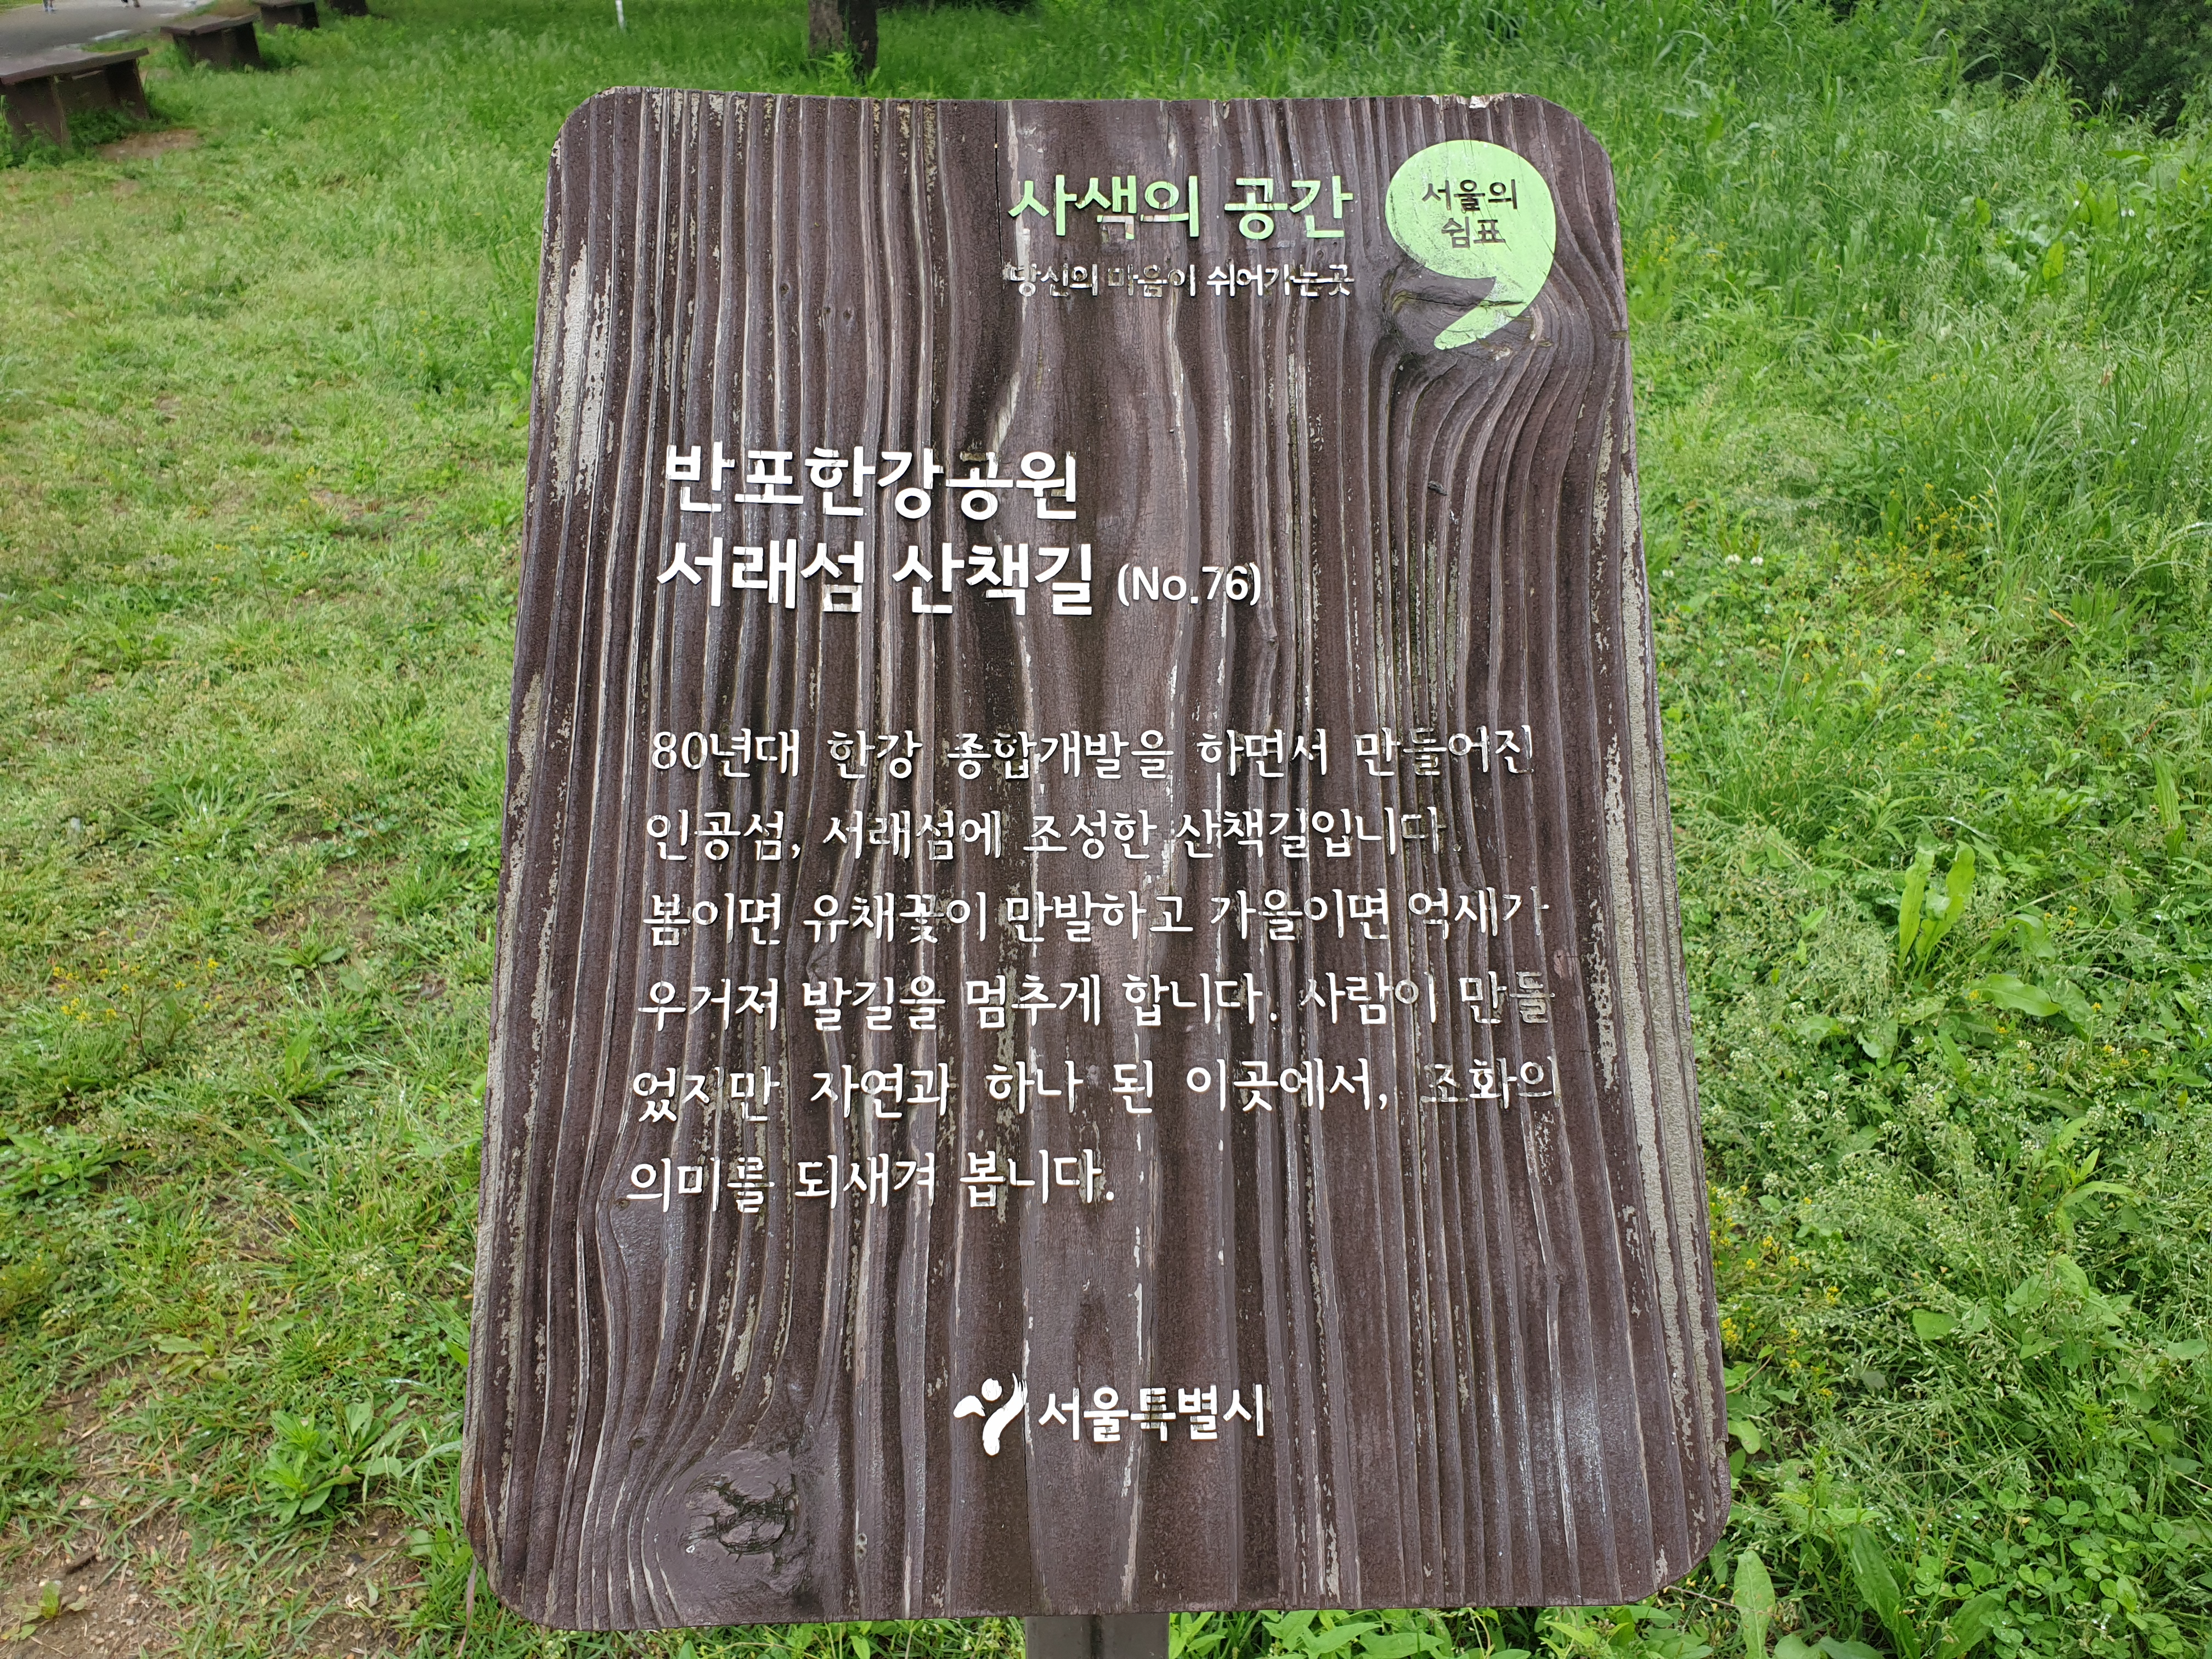 사색의 공간
당신의 마음이 쉬어가는 곳
서울의
쉼표
반포한강공원
서래섬 산책길 (No.76)
80년대 한강 종합개발을 하면서 만들어진
인공섬, 서래섬에 조성한 산책길입니다.
봄이면 유채꽃이 만발하고 가을이면 억새가
우거져 발길을 멈추게 합니다. 사람이 만들
었지만 자연과 하나 된 이곳에서, 조화의
의미를 되새겨 봅니다.
서울특별시